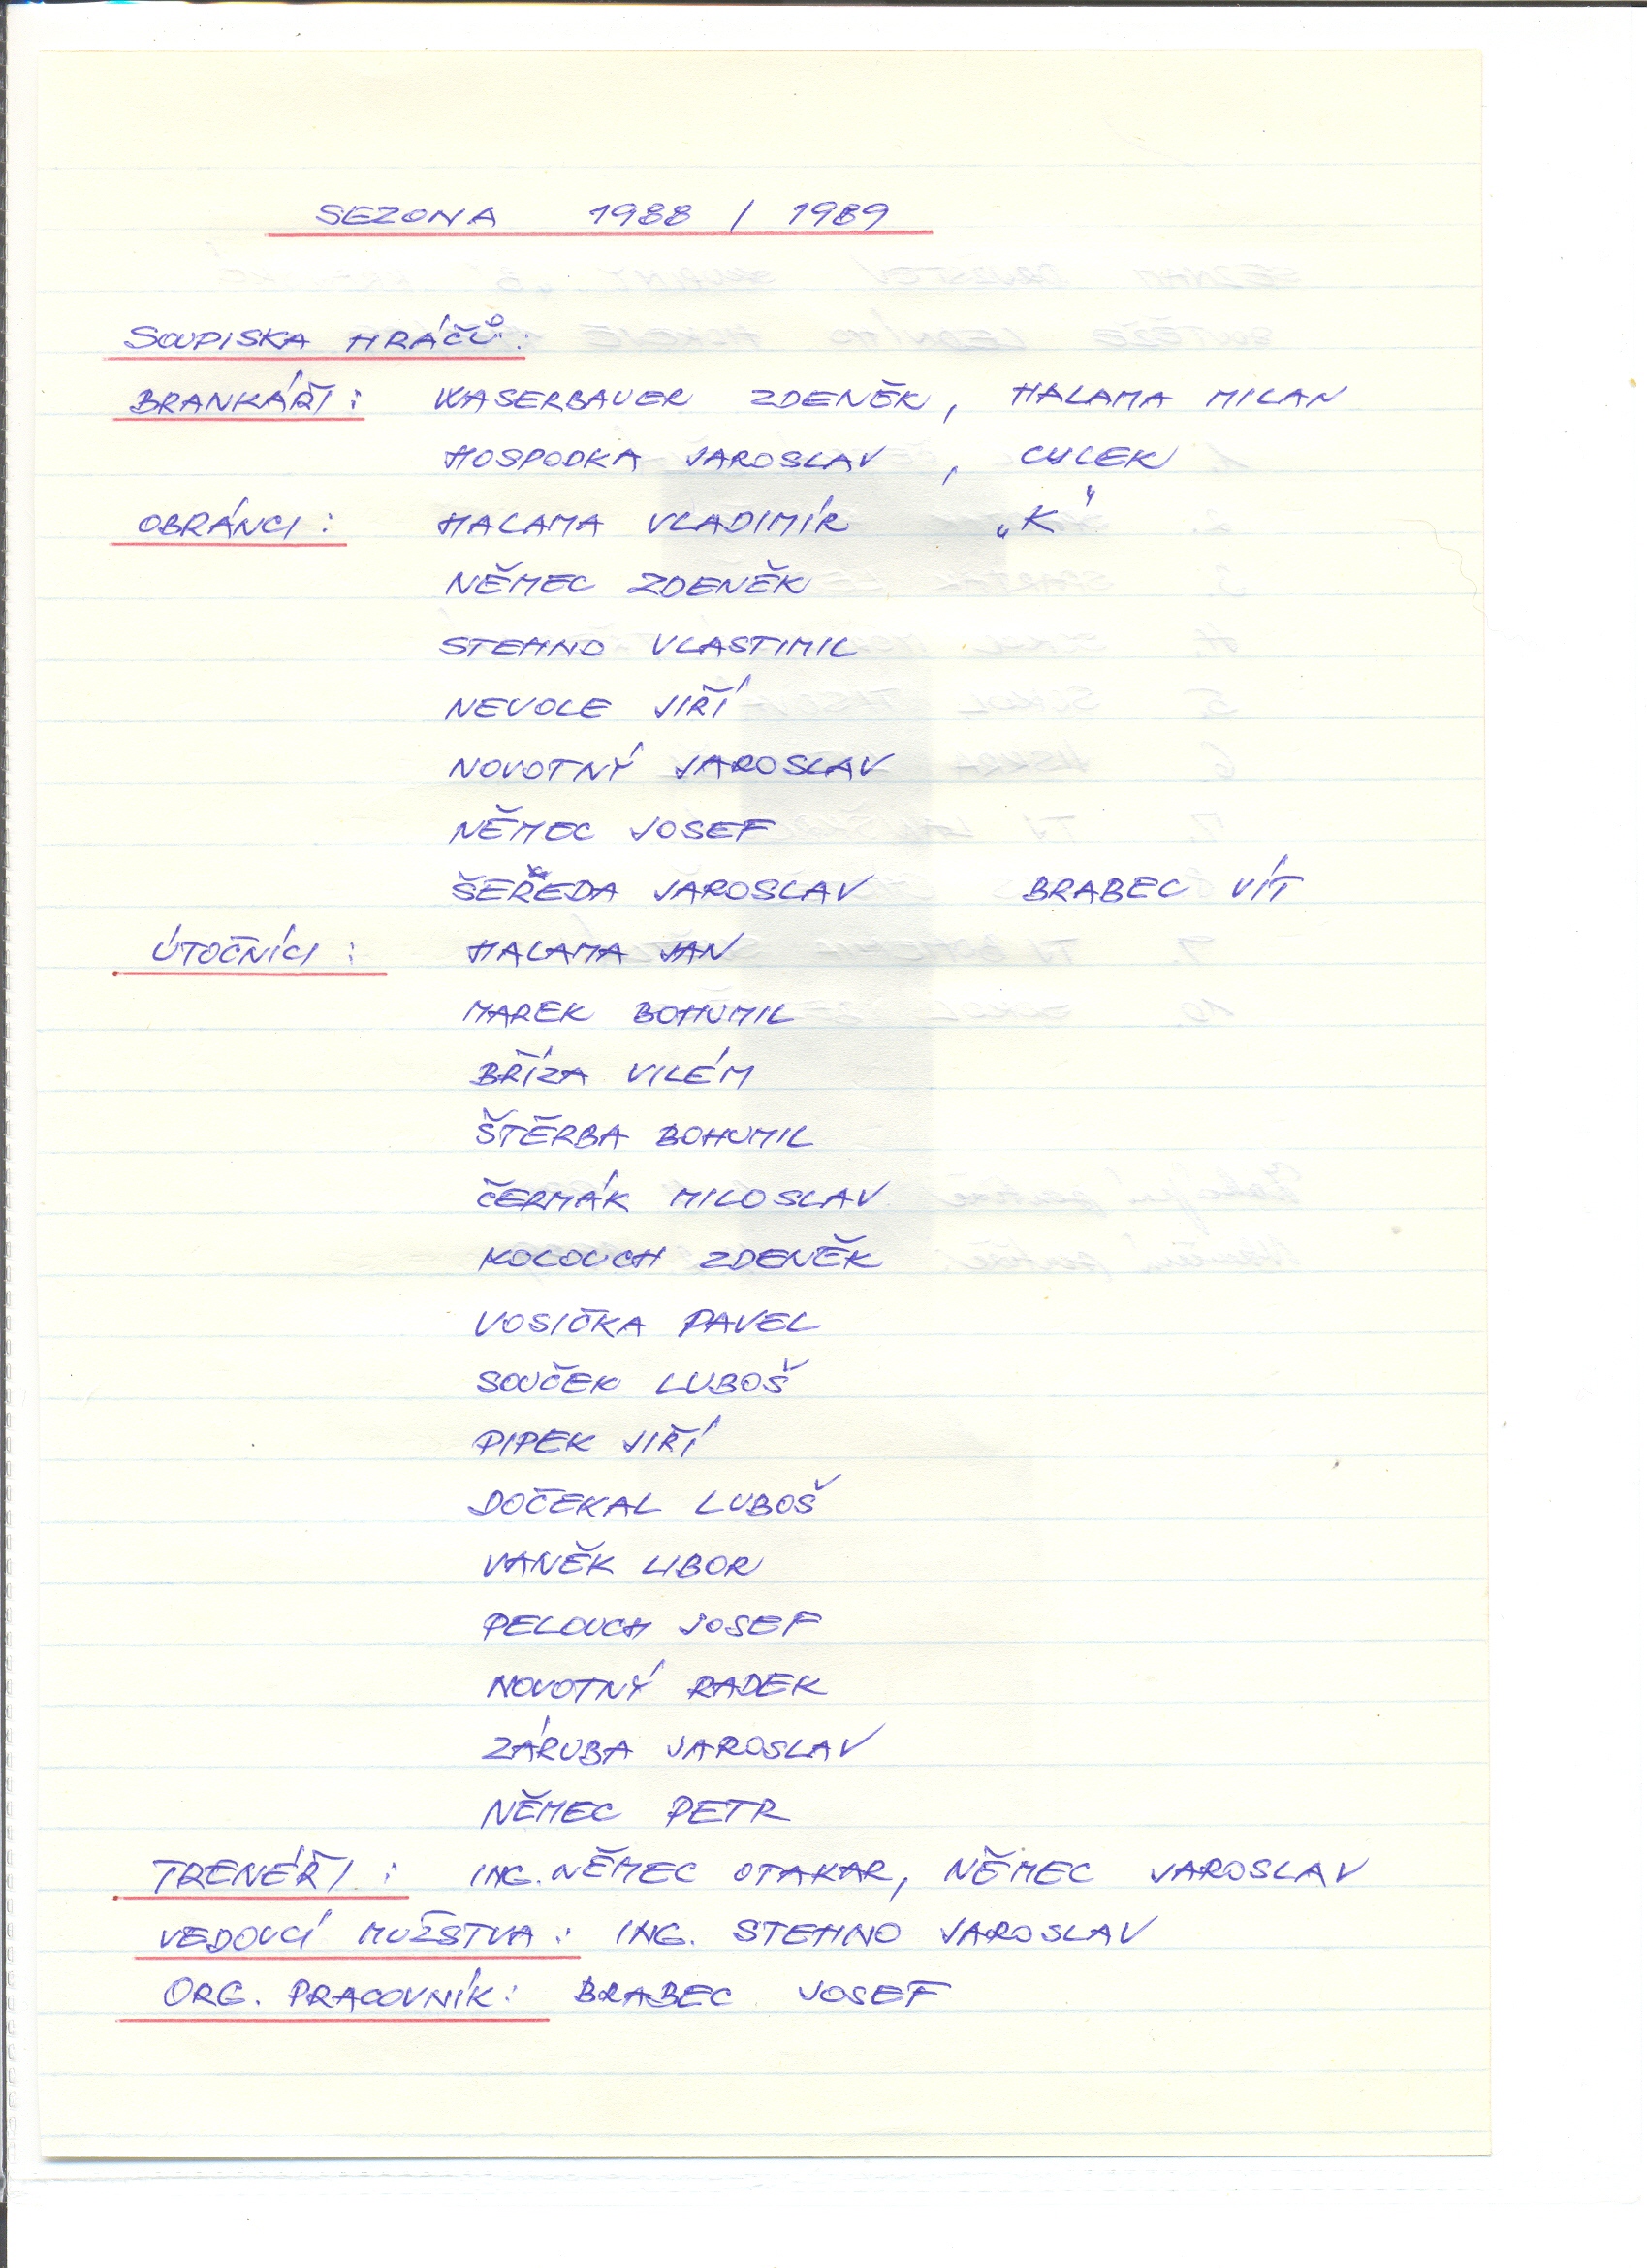 SEZONA 1988 / 1989
SOUPISKA HRÁČŮ:
BRANKÁŘI: WASERBAUER ZDENĚK, HALAMA MILAN
HOSPODKA JAROSLAV, CULEK
OBRÁNCI: HALAMA VLADIMÍR „K"
NĚMEC ZDENĚK
STEHNO VLASTIMIL
NEVOLE JIŘÍ
NOVOTNÝ JAROSLAV
NĚMEC JOSEF
ŠEREDA JAROSLAV BRABEC VÍT
ÚTOČNÍCI: HALAMA JAN
MAREK BOHUMIL
BŘÍZA VILÉM
ŠTĚRBA BOHUMIL
ČERMÁK MILOSLAV
KOLOUCH ZDENĚK
VOSIČKA PAVEL
SOUČEK LUBOŠ
PIPEK JIŘÍ
DOČEKAL LUBOŠ
VANĚK LIBOR
PELOUCH JOSEF
NOVOTNÝ RADEK
ZÁRUBA JAROSLAV
NĚMEC PETR
TRENÉŘI: ING. NĚMEC OTAKAR, NĚMEC JAROSLAV
VEDOUCÍ MUŽSTVA: ING. STEHNO JAROSLAV
ORG. PRACOVNÍK: BRABEC JOSEF